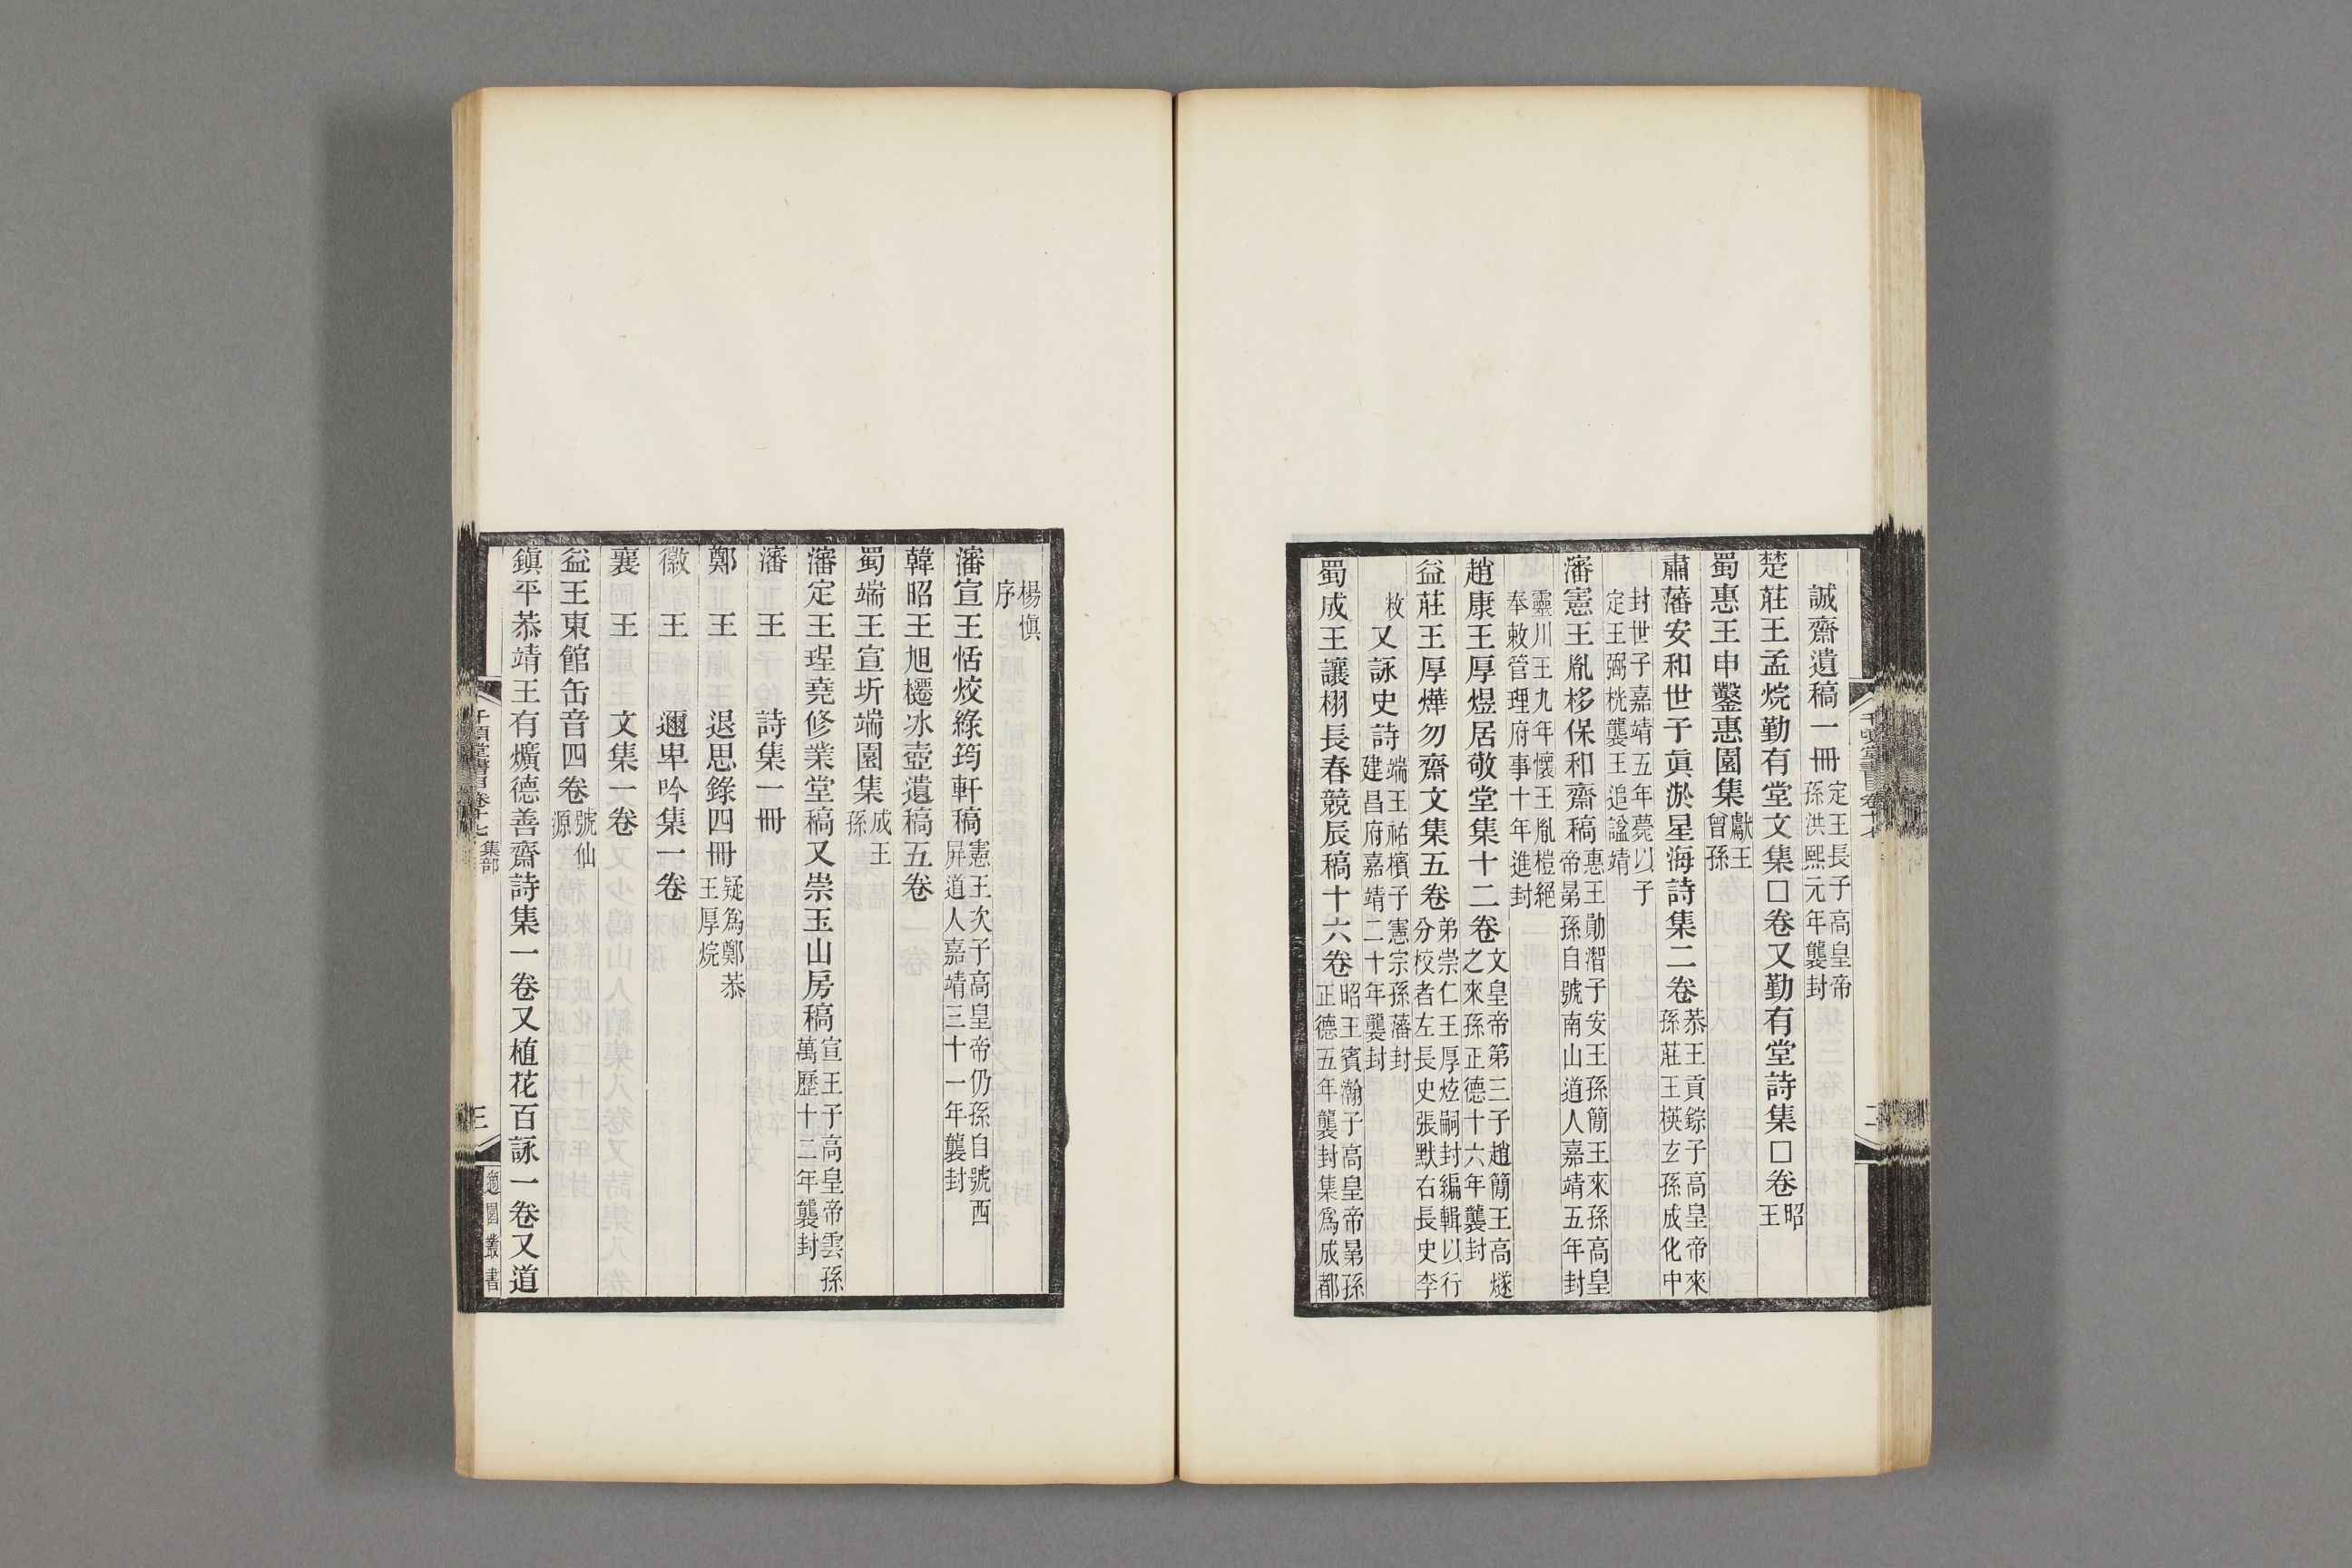 誠齋遺稿一冊定王長子高皇帝孫洪熙元年襲封
楚莊王孟烷勤有堂文集□卷又勤有堂詩集□卷昭王
蜀惠王申鑿惠園集獻王曾孫
肅藩安和世子眞淤星海詩集二卷恭王貢錝子高皇帝來孫莊王模玄孫成化中
封世子嘉靖五年薨以子定王弼桄襲王追諡靖
瀋憲王胤栘保和齋稿惠王勛潪子安王孫簡王來孫高皇帝晜孫自號南山道人嘉靖五年封
靈川王九年懷王胤榿絕奉敕管理府事十年進封
趙康王厚煜居敬堂集十二卷文皇帝第三子趙簡王高燧之來孫正德十六年襲封
益莊王厚燁勿齋文集五卷弟崇仁王厚炫嗣封編輯以行分校者左長史張默右長史李
敉又詠史詩端王祐檳子憲宗孫藩封建昌府嘉靖二十年襲封
蜀成王讓栩長春競辰稿十六卷昭王賓瀚子高皇帝晜孫正德五年襲封集爲成都
楊愼序
瀋宣王恬烄綠筠軒稿憲王次子高皇帝仍孫自號西屏道人嘉靖三十一年襲封
韓昭王旭櫏冰壺遺稿五卷
蜀端王宣圻端園集成王孫
瀋定王珵堯修業堂稿又崇玉山房稿宣王子高皇帝雲孫萬歷十二年襲封
瀋　王　詩集一冊
鄭　王　退思錄四冊疑爲鄭恭王厚烷
徽　王　邇卑吟集一卷
襄　王　文集一卷
益王東館缶音四卷號仙源
鎭平恭靖王有爌德善齋詩集一卷又植花百詠一卷又道
千頃堂書目卷十七　集部
三
適園叢書